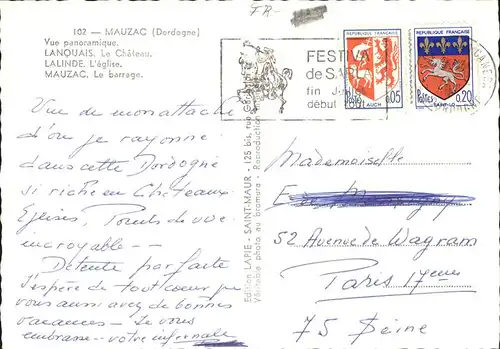 FR-
102 — MAUZAC (Dordogne)
Vue panoramique.
LANQUAIS. Le Château.
LALINDE. L'église.
MAUZAC. Le barrage.
FESTIVA
de SARL
fin J
début
REPUBLIQUE FRANÇAISE
Postes 0,05
AUCH
REPUBLIQUE FRANÇAISE
Postes 0,20
SAINT-LO
Vue de mon attache
d'où je rayonne
dans cette Dordogne
si riche en Châteaux
Eglises, Points de vue
incroyable --
Détente parfaite
J'espère de tout coeur que
vous aussi avez de bonnes
vacances - Je vous
embrasse - votre infernale
Edition LAPIE - SAINT-MAUR - 125 bis, rue
Véritable photo au bromure - Reproduction
Mademoiselle
52 Avenue de Wagram
Paris 17ème
75 Seine